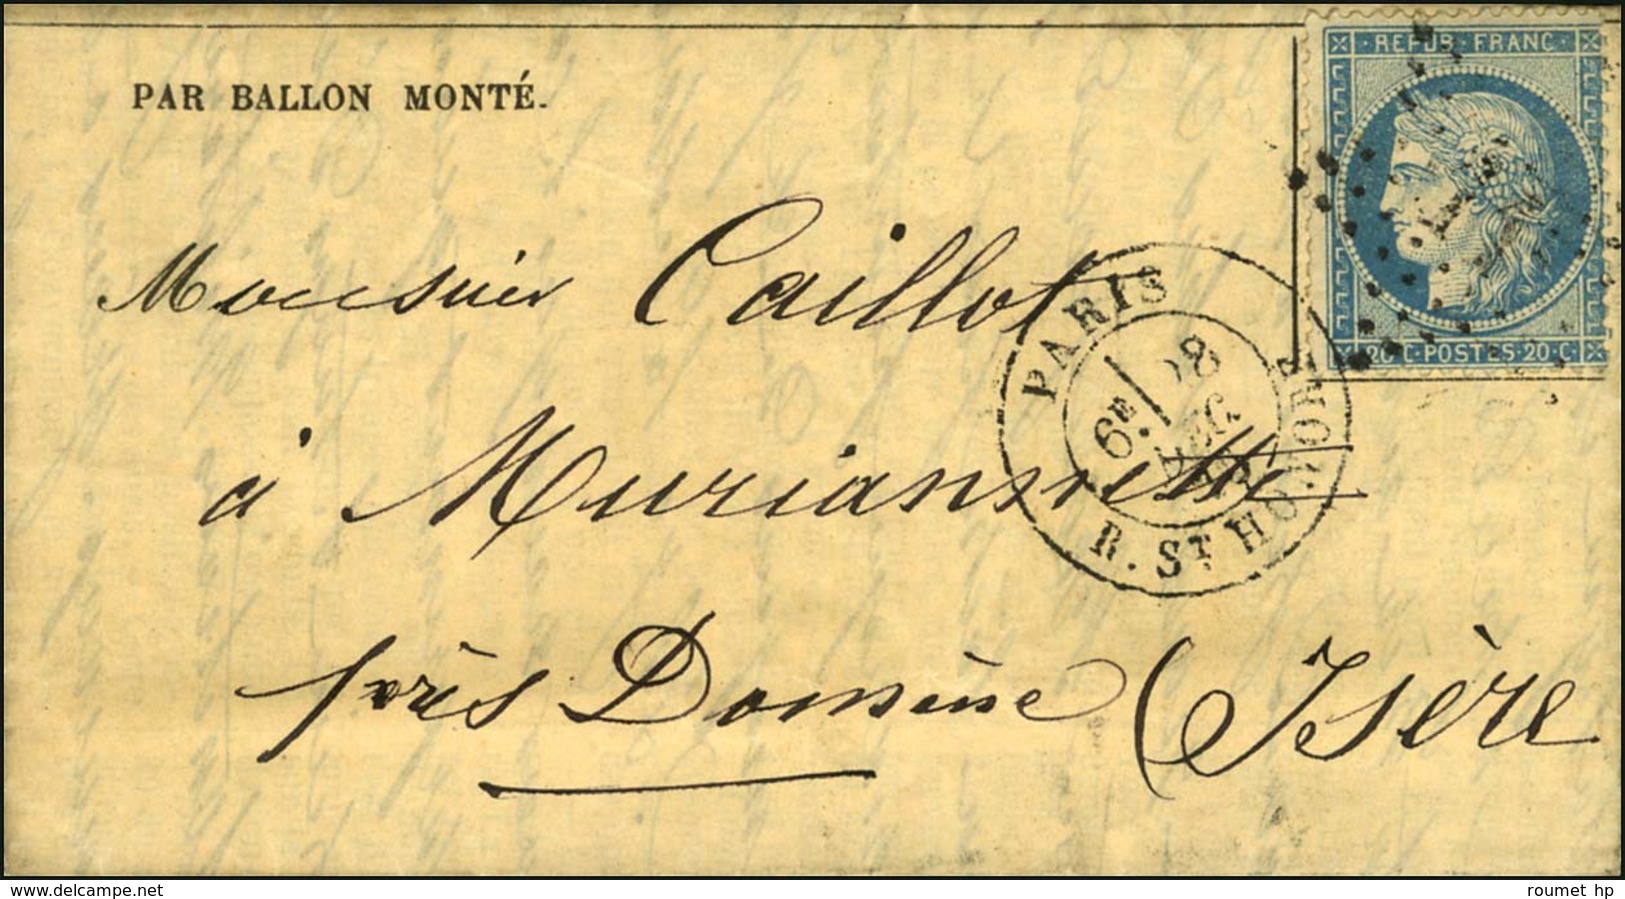 REPUB. FRANC.
PAR BALLON MONTÉ.
20.C.POSTES.20.C
Monsieur Caillot
PARIS
6E 28
DEC.
R. ST HONORE
à Murianette
près Domène (Isère
www.delcampe.net
roumet hp